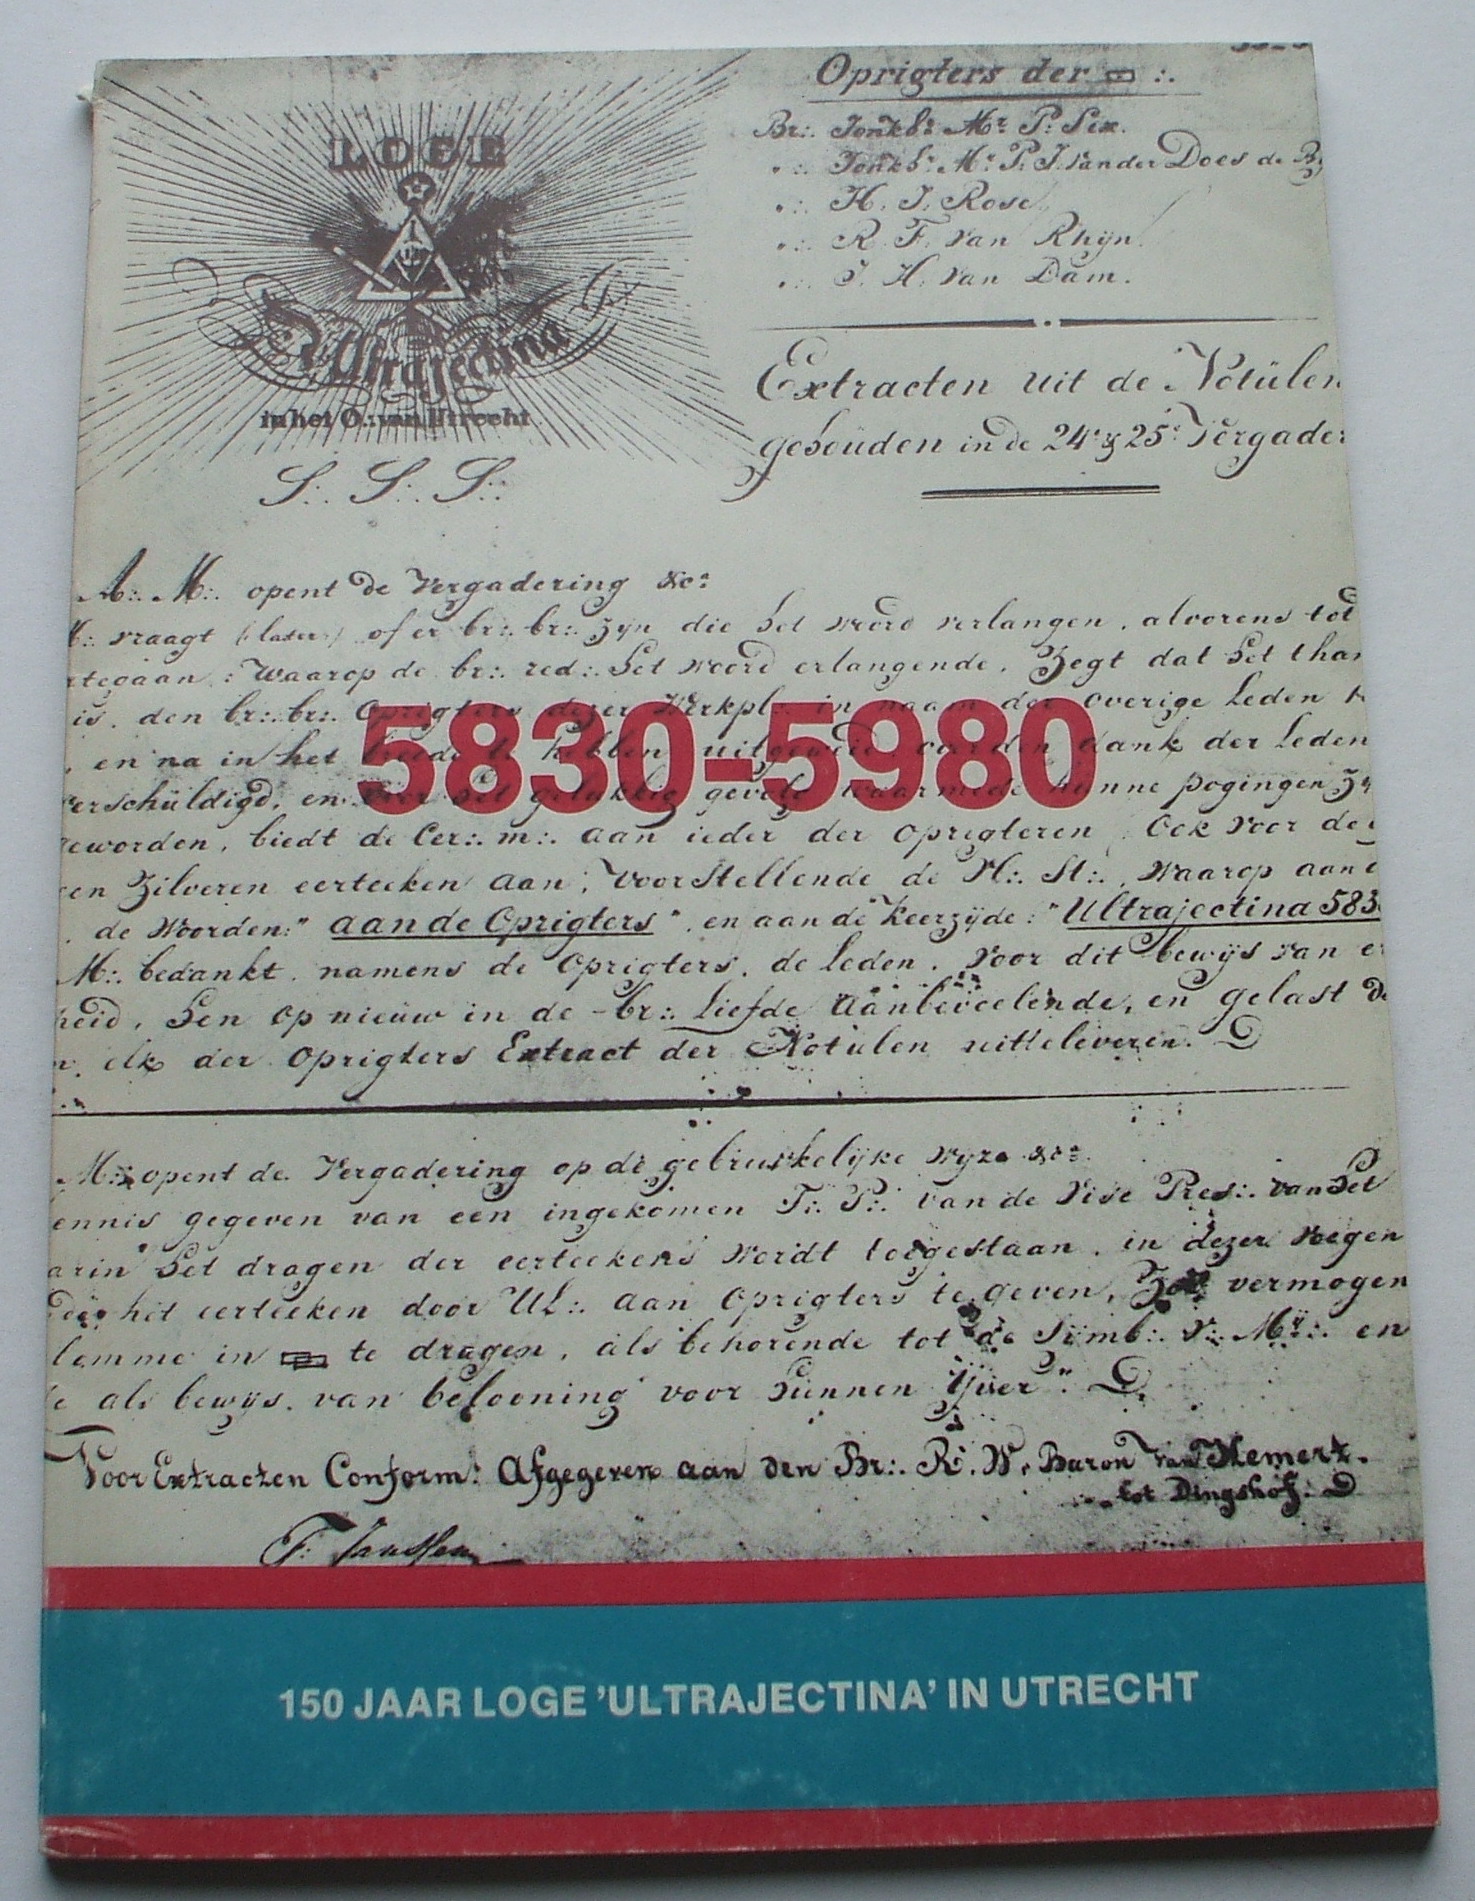 LOGE
Ultrajectina
in het O:. van Utrecht
S:. S:. S:.
Oprigters der ▭ :.
Br:. Jonkhr. Mr. P. Six.
" :. Jonkhr. Mr. P. J. van der Does de
" :. H. J. Rose
" :. R. F. van Rhijn.
" :. J. H. van Dam.
Extracten uit de Notulen
gehouden in de 24e & 25e Vergader
A:. M:. opent de Vergadering &c:
M:. vraagt (later) of er br:. br:. zijn die het woord verlangen, alvorens tot
tegaan: Waarop de br:. red:. het woord erlangende, Zegt dat het than
is, den br:. br:. Oprigters dezer Werkpl:. in naam der overige Leden
5830-5980
, en na in het hebben uitgeweid dank der Leden
verschuldigd, en het gelukkig gevolg waarmede hunne pogingen
geworden, biedt de Cer:. m:. aan ieder der oprigteren, Ook voor de
een Zilveren eerteeken aan, Voorstellende de Vl:. St:., Waarop aan
de Woorden: "aan de Oprigters", en aan de keerzijde: "Ultrajectina 583
M:. bedankt, namens de Oprigters, de Leden, Voor dit bewijs van
heid, hen op nieuw in de br:. Liefde aanbeveelende, en gelast
elk der oprigters Extract der Notulen uitteleveren.
M:. opent de Vergadering op de gebruikelijke wijze &c:
ennis gegeven van een ingekomen T:. P:. van de Vise Pres:. van het
arin het dragen der eerteekens wordt toegestaan, in dezer voegen
het eerteeken door Ul:. aan Oprigters te geven, Zal vermogen
lemme in ▭ te dragen, als behorende tot de Simb:. V:. Mij:. en
als bewijs van belooning voor hunnen ijver".
Voor Extracten Conform: Afgegeven aan den Br:. R. W. Baron van Hemert.
tot Dingshof.
F. Janssen
150 JAAR LOGE 'ULTRAJECTINA' IN UTRECHT